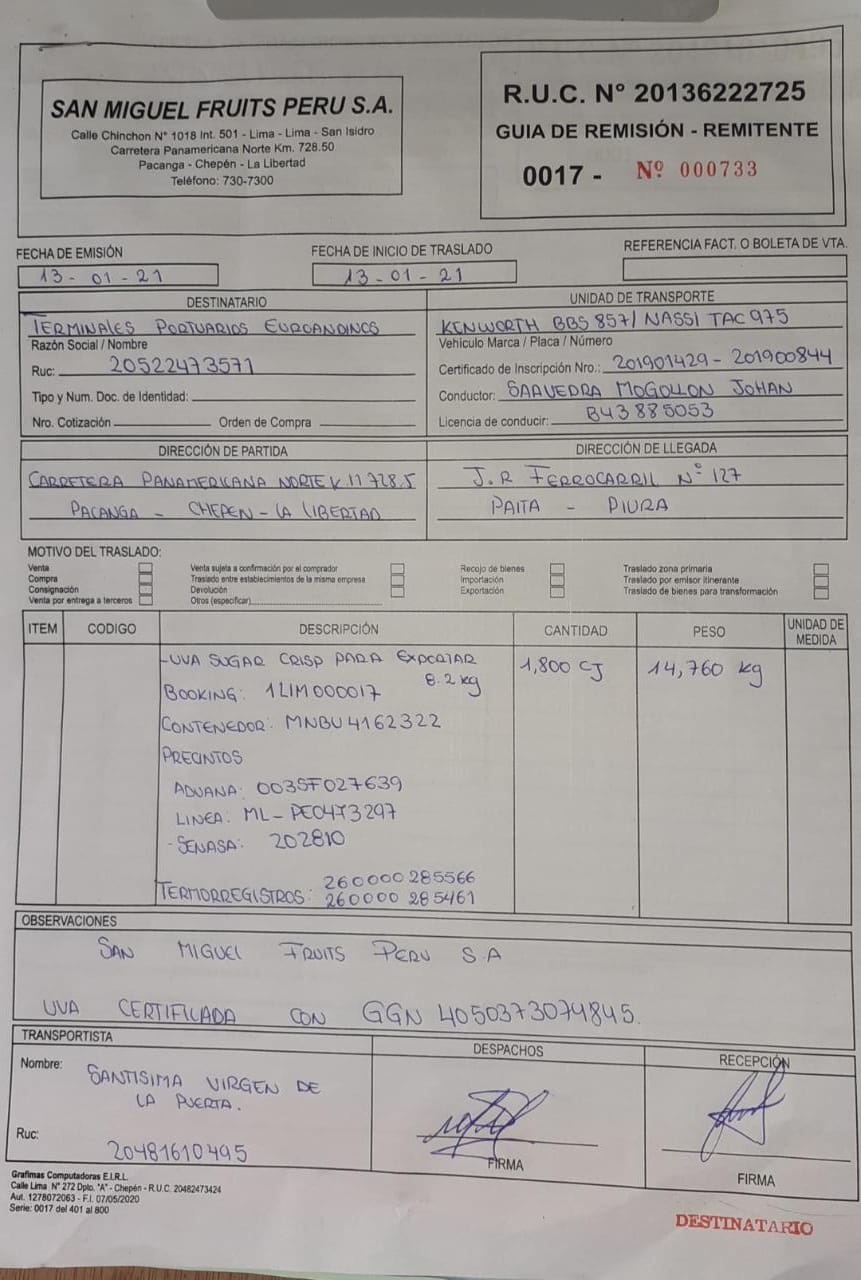 SAN MIGUEL FRUITS PERU S.A.
Calle Chinchon N° 1018 Int. 501 - Lima - Lima - San Isidro
Carretera Panamericana Norte Km. 728.50
Pacanga - Chepén - La Libertad
Teléfono: 730-7300
R.U.C. N° 20136222725
GUIA DE REMISIÓN - REMITENTE
0017 - Nº 000733
FECHA DE EMISIÓN
13-01-21
FECHA DE INICIO DE TRASLADO
13-01-21
REFERENCIA FACT. O BOLETA DE VTA.
DESTINATARIO
TERMINALES PORTUARIOS EUROANDINOS
Razón Social / Nombre
Ruc: 20522473571
Tipo y Num. Doc. de Identidad:
Nro. Cotización Orden de Compra
UNIDAD DE TRANSPORTE
KENWORTH BBS 857/ NASSI TAC 975
Vehiculo Marca / Placa / Número
Certificado de Inscripción Nro.: 201901429 - 201900844
Conductor: SAAVEDRA MOGOLLON JOHAN
Licencia de conducir: B43885053
DIRECCIÓN DE PARTIDA
CARRETERA PANAMERICANA NORTE K.M 728.5
PACANGA - CHEPEN - LA LIBERTAD
DIRECCIÓN DE LLEGADA
J.R FERROCARRIL N° 127
PAITA - PIURA
MOTIVO DEL TRASLADO:
Venta
Compra
Consignación
Venta por entrega a terceros
Venta sujeta a confirmación por el comprador
Traslado entre establecimientos de la misma empresa
Devolución
Otros (especificar)
Recojo de bienes
Importación
Exportación
Traslado zona primaria
Traslado por emisor itinerante
Traslado de bienes para transformación
ITEM CODIGO DESCRIPCIÓN CANTIDAD PESO UNIDAD DE MEDIDA
-UVA SUGAR CRISP PARA EXPORTAR 1,800 CJ 14,760 kg
8.2 kg
BOOKING: 1LIM000017
CONTENEDOR: MNBU 4162322
PRECINTOS
ADUANA: 003SF027639
LINEA: ML-PE0473297
-SENASA: 202810
TERMORREGISTROS: 260000 285566
260000 285461
OBSERVACIONES
SAN MIGUEL FRUITS PERU S.A
UVA CERTIFICADA CON GGN 4050373074845.
TRANSPORTISTA
Nombre: SANTISIMA VIRGEN DE
LA PUERTA.
Ruc: 20481610495
DESPACHOS
FIRMA
RECEPCIÓN
FIRMA
Grafimas Computadoras E.I.R.L.
Calle Lima N° 272 Dpto. "A" - Chepén - R.U.C. 20482473424
Aut. 1278072063 - F.I. 07/05/2020
Serie: 0017 del 401 al 800
DESTINATARIO